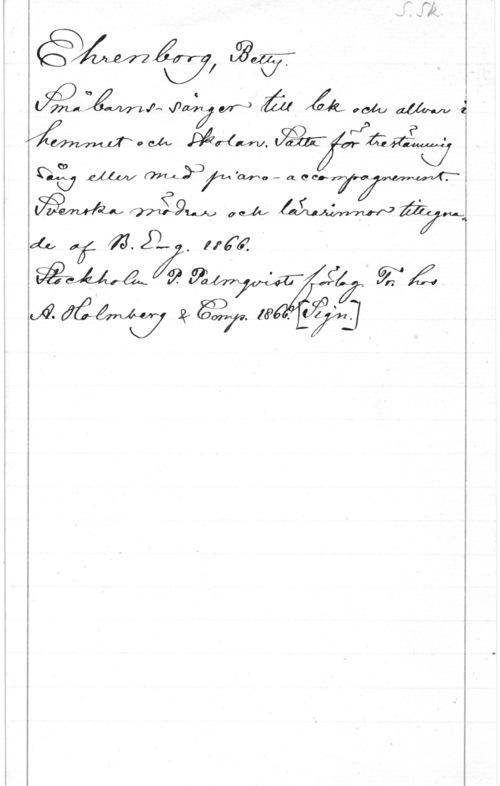 S. Sk.
Ehrenborg, Betty.
Småbarns-sånger till lek och allvar i
hemmet och skolan. Satta för trestämmig
sång eller med piano-accompagnement.
Svenska mödrar och lärarinnor tillegna-
de af B. E-g. 1866.
Stockholm P. Palmqvists förlag. Tr. hos
A. Holmberg & Comp. 1866. [Sign.]